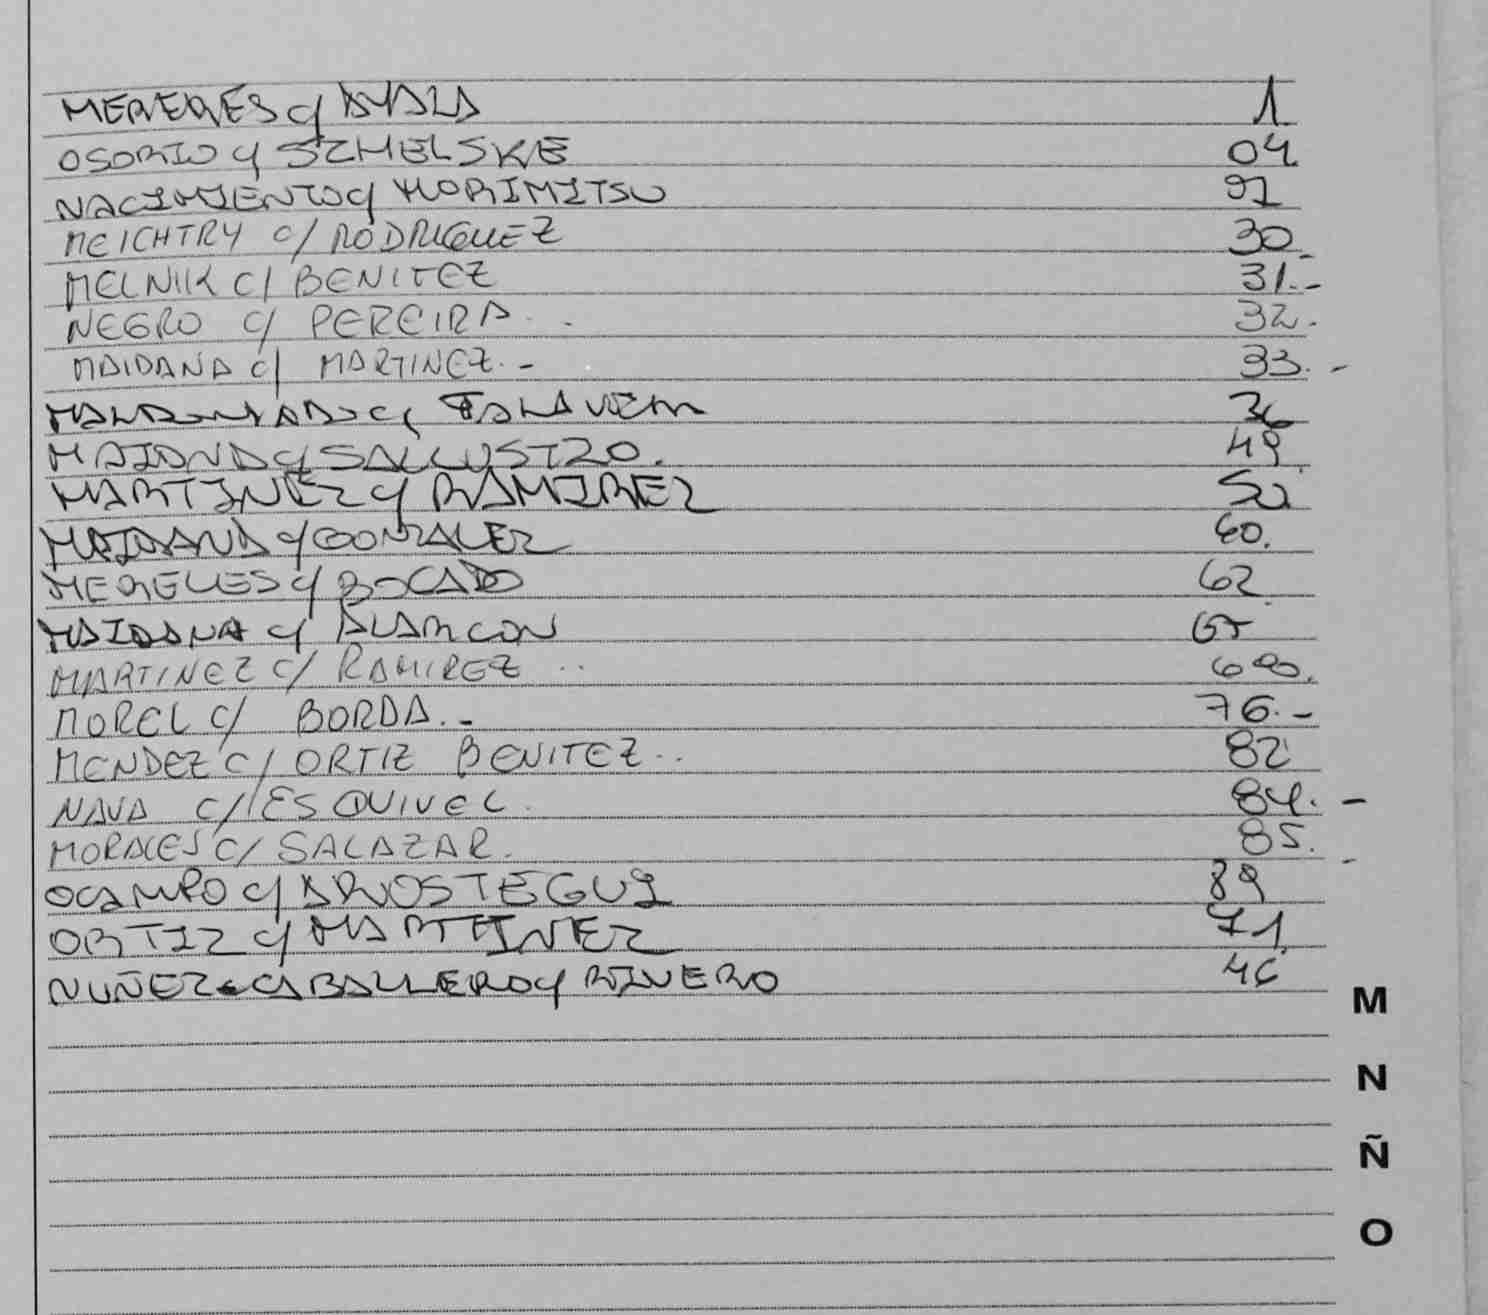 MERERES c/ AYALA 1
OSORIO c/ SZMELSKE 04
NACIMIENTO c/ MORIMITSU 91
MEICHTRY c/ RODRIGUEZ 30
MELNIK c/ BENITEZ 31.-
NEGRO c/ PEREIRA. 32.
MAIDANA c/ MARTINEZ.- 33.-
MALDONADO c/ TALAVERA 36
MAIDANA c/ SALLUSTIO. 49
MARTINEZ c/ RAMIREZ 52
MAIDANA c/ GONZALEZ 60.
MERELES c/ BOCADO 62
MAIDANA c/ ALARCON 65
MARTINEZ c/ RAMIREZ .. 68.
MOREL c/ BORDA.- 76.-
MENDEZ c/ ORTIZ BENITEZ.. 82
NAVA c/ ESQUIVEL. 84.-
MORALES c/ SALAZAR. 85.
OCAMPO c/ AROSTEGUI 89
ORTIZ c/ MARTINEZ 71
NUÑEZ CABALLERO c/ RIVERO 46
M
N
Ñ
O